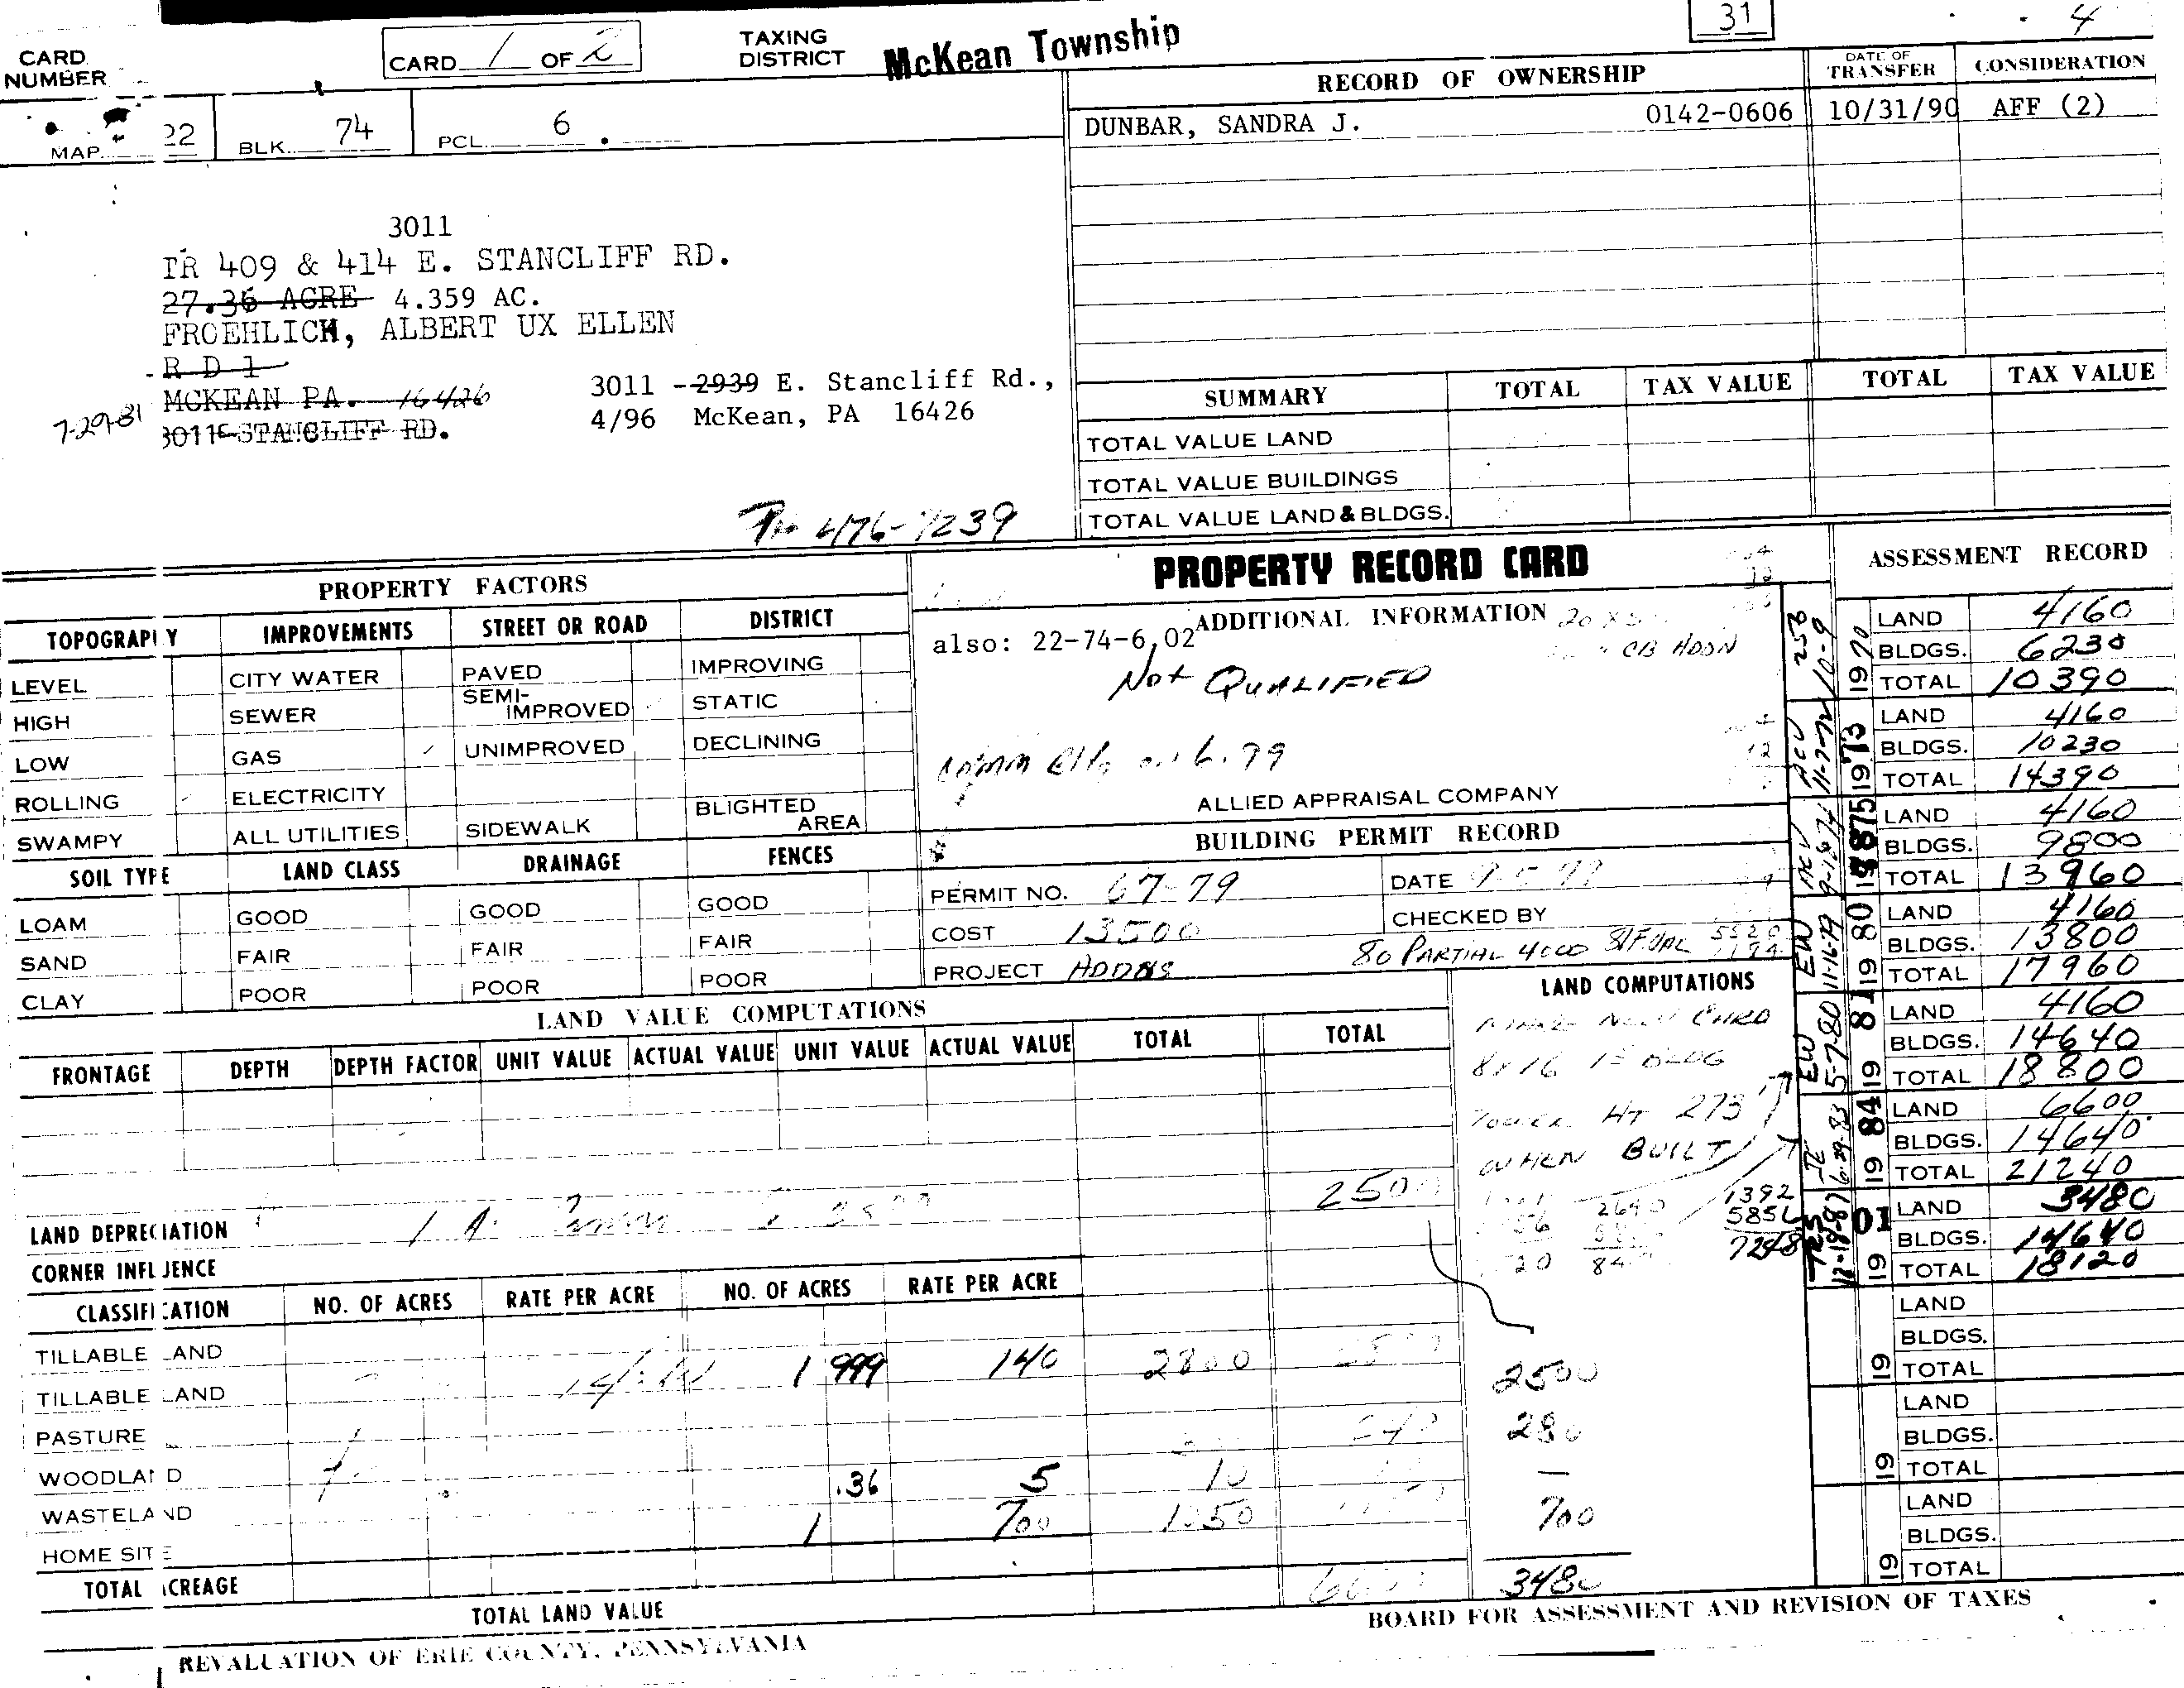 31
4
CARD NUMBER
CARD 1 OF 2
TAXING DISTRICT McKean Township
MAP 22 BLK. 74 PCL. 6
RECORD OF OWNERSHIP DATE OF TRANSFER CONSIDERATION
DUNBAR, SANDRA J. 0142-0606 10/31/90 AFF (2)
3011
TR 409 & 414 E. STANCLIFF RD.
27.36 ACRE 4.359 AC.
FROEHLICH, ALBERT UX ELLEN
R D 1
MCKEAN PA. 16426
7-29-81 3011 E STANCLIFF RD.
3011 -2939 E. Stancliff Rd.,
4/96 McKean, PA 16426
PH 476-7239
SUMMARY TOTAL TAX VALUE TOTAL TAX VALUE
TOTAL VALUE LAND
TOTAL VALUE BUILDINGS
TOTAL VALUE LAND & BLDGS.
PROPERTY RECORD CARD
PROPERTY FACTORS
TOPOGRAPHY IMPROVEMENTS STREET OR ROAD DISTRICT
LEVEL CITY WATER PAVED IMPROVING
HIGH SEWER SEMI-IMPROVED STATIC
LOW GAS UNIMPROVED DECLINING
ROLLING ELECTRICITY BLIGHTED AREA
SWAMPY ALL UTILITIES SIDEWALK
SOIL TYPE LAND CLASS DRAINAGE FENCES
LOAM GOOD GOOD GOOD
SAND FAIR FAIR FAIR
CLAY POOR POOR POOR
ADDITIONAL INFORMATION
also: 22-74-6.02
CB ADDN
Not QUALIFIED
6.79
ALLIED APPRAISAL COMPANY
BUILDING PERMIT RECORD
PERMIT NO. 67-79 DATE
COST 13500 CHECKED BY
80 PARTIAL 4000
PROJECT ADDNS
ASSESSMENT RECORD
1970 LAND 4160
BLDGS. 6230
TOTAL 10390
1973 LAND 4160
BLDGS. 10230
TOTAL 14390
1975 LAND 4160
BLDGS. 9800
TOTAL 13960
1980 LAND 4160
BLDGS. 13800
TOTAL 17960
EW 11-16-79
1981 LAND 4160
BLDGS. 14640
TOTAL 18800
EW 5-7-80
1984 LAND 6600
BLDGS. 14640
TOTAL 21240
6-29-83
01 19 LAND 3480
BLDGS. 14640
TOTAL 18120
12-18-87
19 LAND
BLDGS.
TOTAL
19 LAND
BLDGS.
TOTAL
19 LAND
BLDGS.
TOTAL
LAND VALUE COMPUTATIONS
FRONTAGE DEPTH DEPTH FACTOR UNIT VALUE ACTUAL VALUE UNIT VALUE ACTUAL VALUE TOTAL TOTAL
LAND COMPUTATIONS
CARD
8x16 BLDG
TOWER HT 273'
WHEN BUILT
1392
5856
7248
LAND DEPRECIATION 1 A. 2500
CORNER INFLUENCE
CLASSIFICATION NO. OF ACRES RATE PER ACRE NO. OF ACRES RATE PER ACRE
TILLABLE LAND
TILLABLE LAND 1 999 140 2800 2500
PASTURE 280
WOODLAND .36 5 10 —
WASTELAND 1 700 1050 700
HOME SITE
TOTAL ACREAGE 3480
TOTAL LAND VALUE
BOARD FOR ASSESSMENT AND REVISION OF TAXES
REVALUATION OF ERIE COUNTY, PENNSYLVANIA